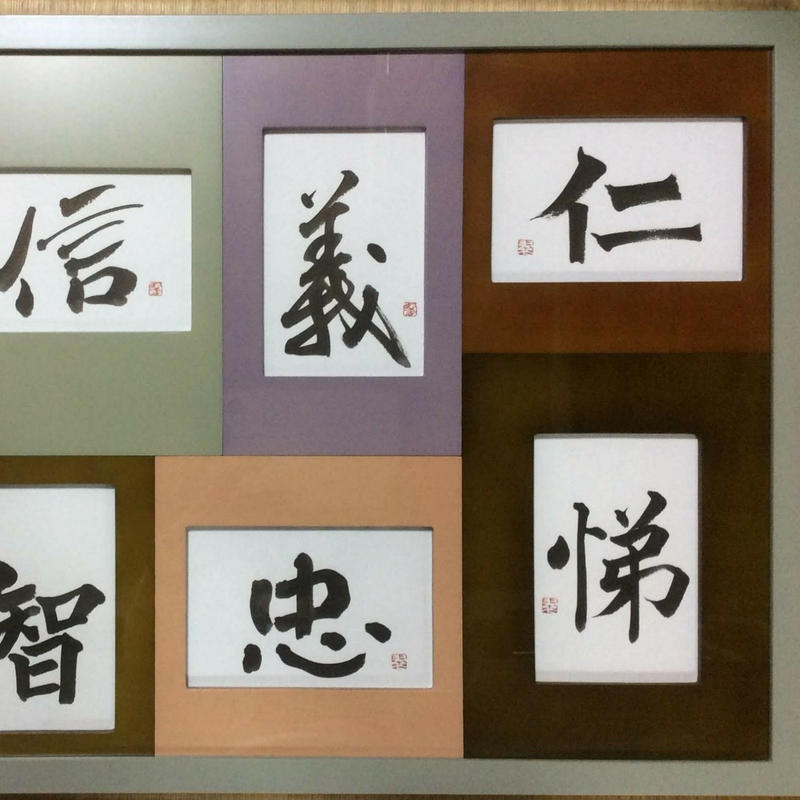 仁
義
信
悌
忠
智